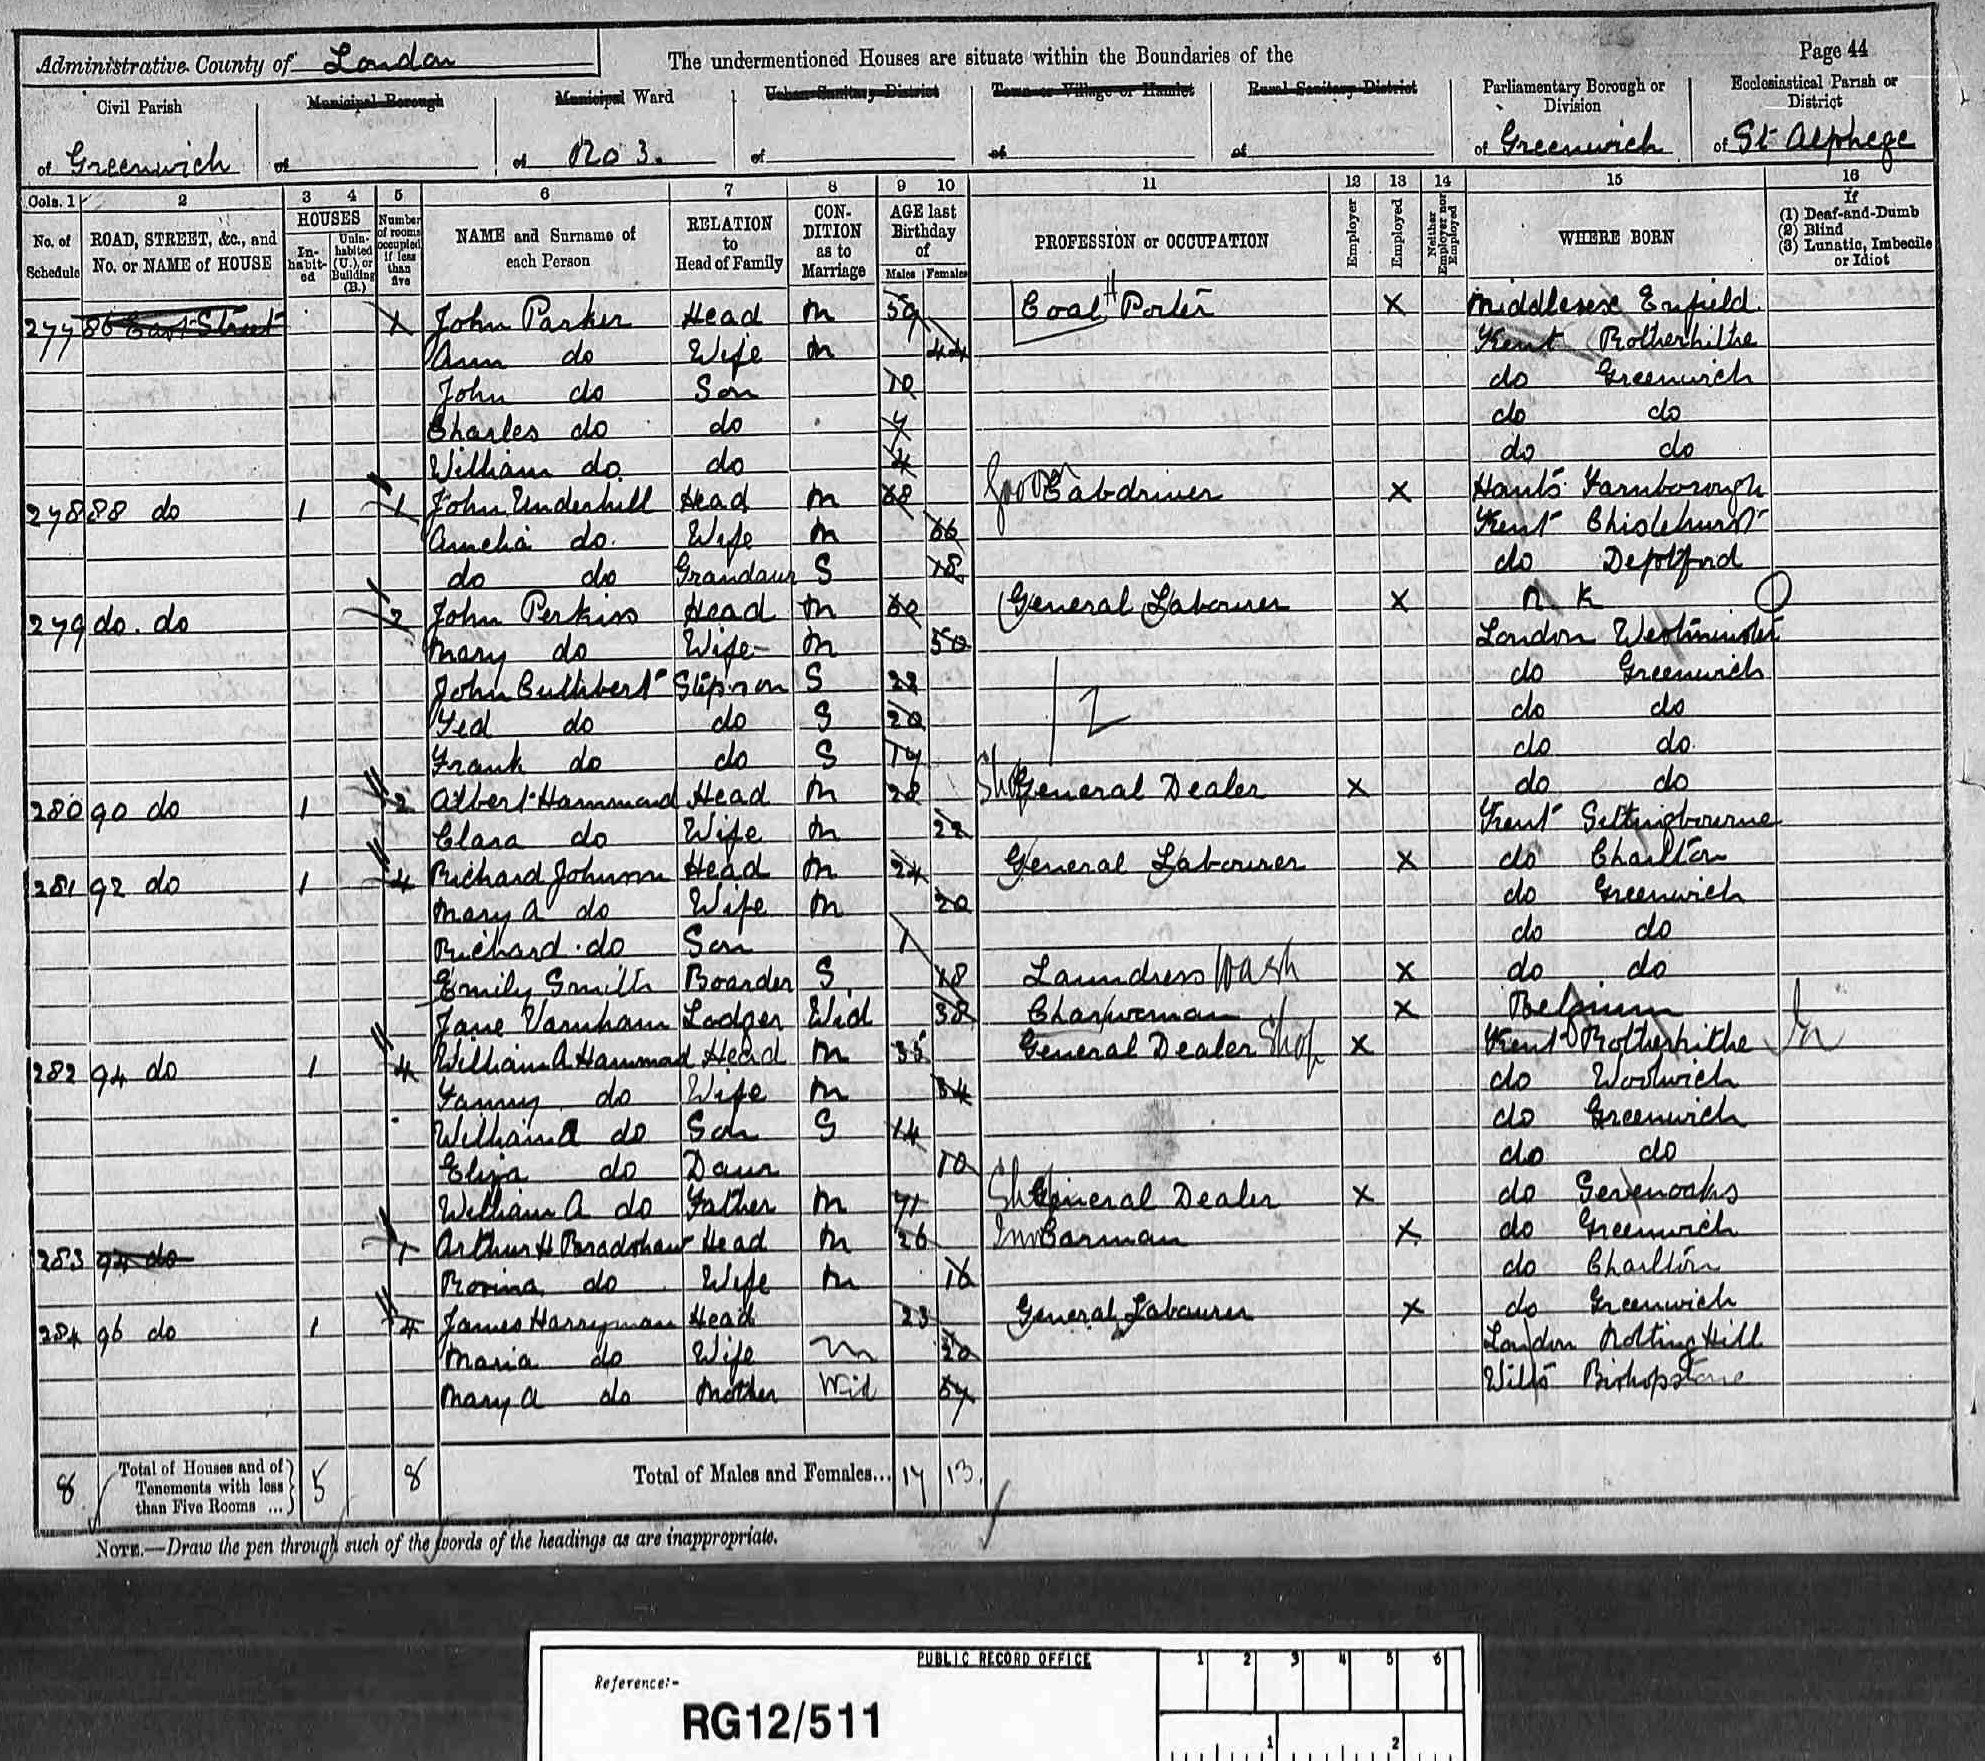 Administrative County of London
The undermentioned Houses are situate within the Boundaries of the
Page 44
Civil Parish
Municipal Borough
Municipal Ward
Urban Sanitary District
Town or Village or Hamlet
Rural Sanitary District
Parliamentary Borough or Division
Ecclesiastical Parish or District
of Greenwich
of
of No 3.
of
of
of
of Greenwich
of St Alphege
Cols. 1 2 3 4 5 6 7 8 9 10 11 12 13 14 15 16
No. of Schedule
ROAD, STREET, &c., and No. or NAME of HOUSE
HOUSES
In-habit-ed
Unin-habited (U.), or Building (B.)
Number of rooms occupied if less than five
NAME and Surname of each Person
RELATION to Head of Family
CON-DITION as to Marriage
AGE last Birthday of
Males Females
PROFESSION or OCCUPATION
Employer
Employed
Neither Employer nor Employed
WHERE BORN
If
(1) Deaf-and-Dumb
(2) Blind
(3) Lunatic, Imbecile or Idiot
277 86 East Street 1 John Parker Head M 59 Coal Porter X Middlesex Enfield
Ann do Wife M 44 Kent Rotherhithe
John do Son 10 do Greenwich
Charles do do 7 do do
William do do 4 do do
278 88 do 1 1 John Underhill Head M 68 Cabdriver X Hants Farnborough
Amelia do Wife M 66 Kent Chislehurst
do do Grandaur S 18 do Deptford
279 do. do 2 John Perkins Head M 60 General Labourer X N. K
Mary do Wife M 50 London Westminster
John Cuthbert Stepson S 22 do Greenwich
Fed do do S 20 do do
Frank do do S 17 do do
280 90 do 1 2 Albert Hammond Head M 28 Shop General Dealer X do do
Clara do Wife M 22 Kent Sittingbourne
281 92 do 1 4 Richard Johnson Head M 24 General Labourer X do Charlton
Mary A do Wife M 20 do Greenwich
Richard do Son 1 do do
Emily Smith Boarder S 18 Laundress Wash X do do
Jane Varnham Lodger Wid 38 Charwoman X Belgium
282 94 do 1 4 William A Hammond Head M 35 General Dealer Shop X Kent Rotherhithe
Fanny do Wife M 34 do Woolwich
William A do Son S 14 do Greenwich
Eliza do Daur 10 do do
William A do Father M 71 Shop General Dealer X do Sevenoaks
283 94 do 1 Arthur H Bradshaw Head M 26 Carman X do Greenwich
Rosina do Wife M 18 do Charlton
284 96 do 1 4 James Harryman Head 23 General Labourer X do Greenwich
Maria do Wife M 20 London Notting Hill
Mary A do Mother Wid 67 Wilts Bishopstone
8 Total of Houses and of Tenements with less than Five Rooms ... 5 8 Total of Males and Females... 17 13
NOTE.—Draw the pen through such of the words of the headings as are inappropriate.
PUBLIC RECORD OFFICE
Reference:-
RG12/511
1 2 3 4 5 6
1 2